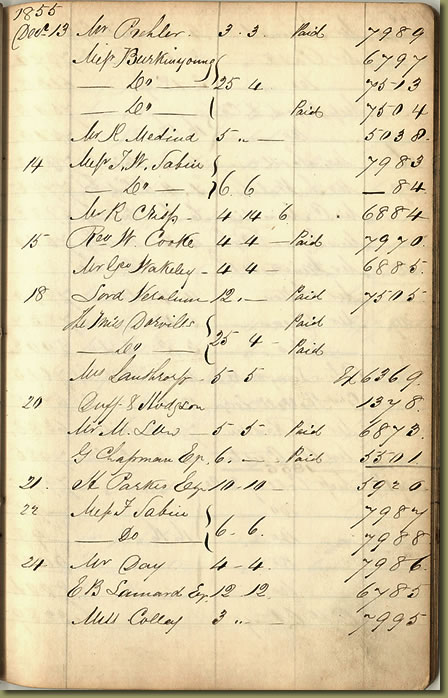 1855
Decr 13 Mr Pochler 3 . 3 . Paid 7989
Miss Burkinyoung 6797
— Do — 25 4 7503
— Do — Paid 7504
Mr R. Medina 5 " — 5038 .
14 Miss T. W. Tabiu 7983
— Do — 6 . 6 — 84
Mr R Crisp - 4 14 6 . 6884
15 Rev W. Cooke 4 - 4 — Paid 7970
Mr Geo Wakeley - 4 - 4 — 6885 .
18 Lord Verulam 12 " — Paid 7505
The Miss Dorvills Paid
— Do — 25 4 - Paid
5 - 5 6369 .
20 Duff & Hodgson 1378 .
Mr M. 5 - 5 Paid 6873 .
G Chapman Eq . 6 . — Paid 5501
21 . H. Parkes Eq . 10 - 10 - 5920
22 Miss F Tabiu 7987
— Do 6 - 6 . 7988
24 Mr Day 4 - 4 . 7986
E B Eq . 12 . 12 . 6785
Miss 3 " — 7995